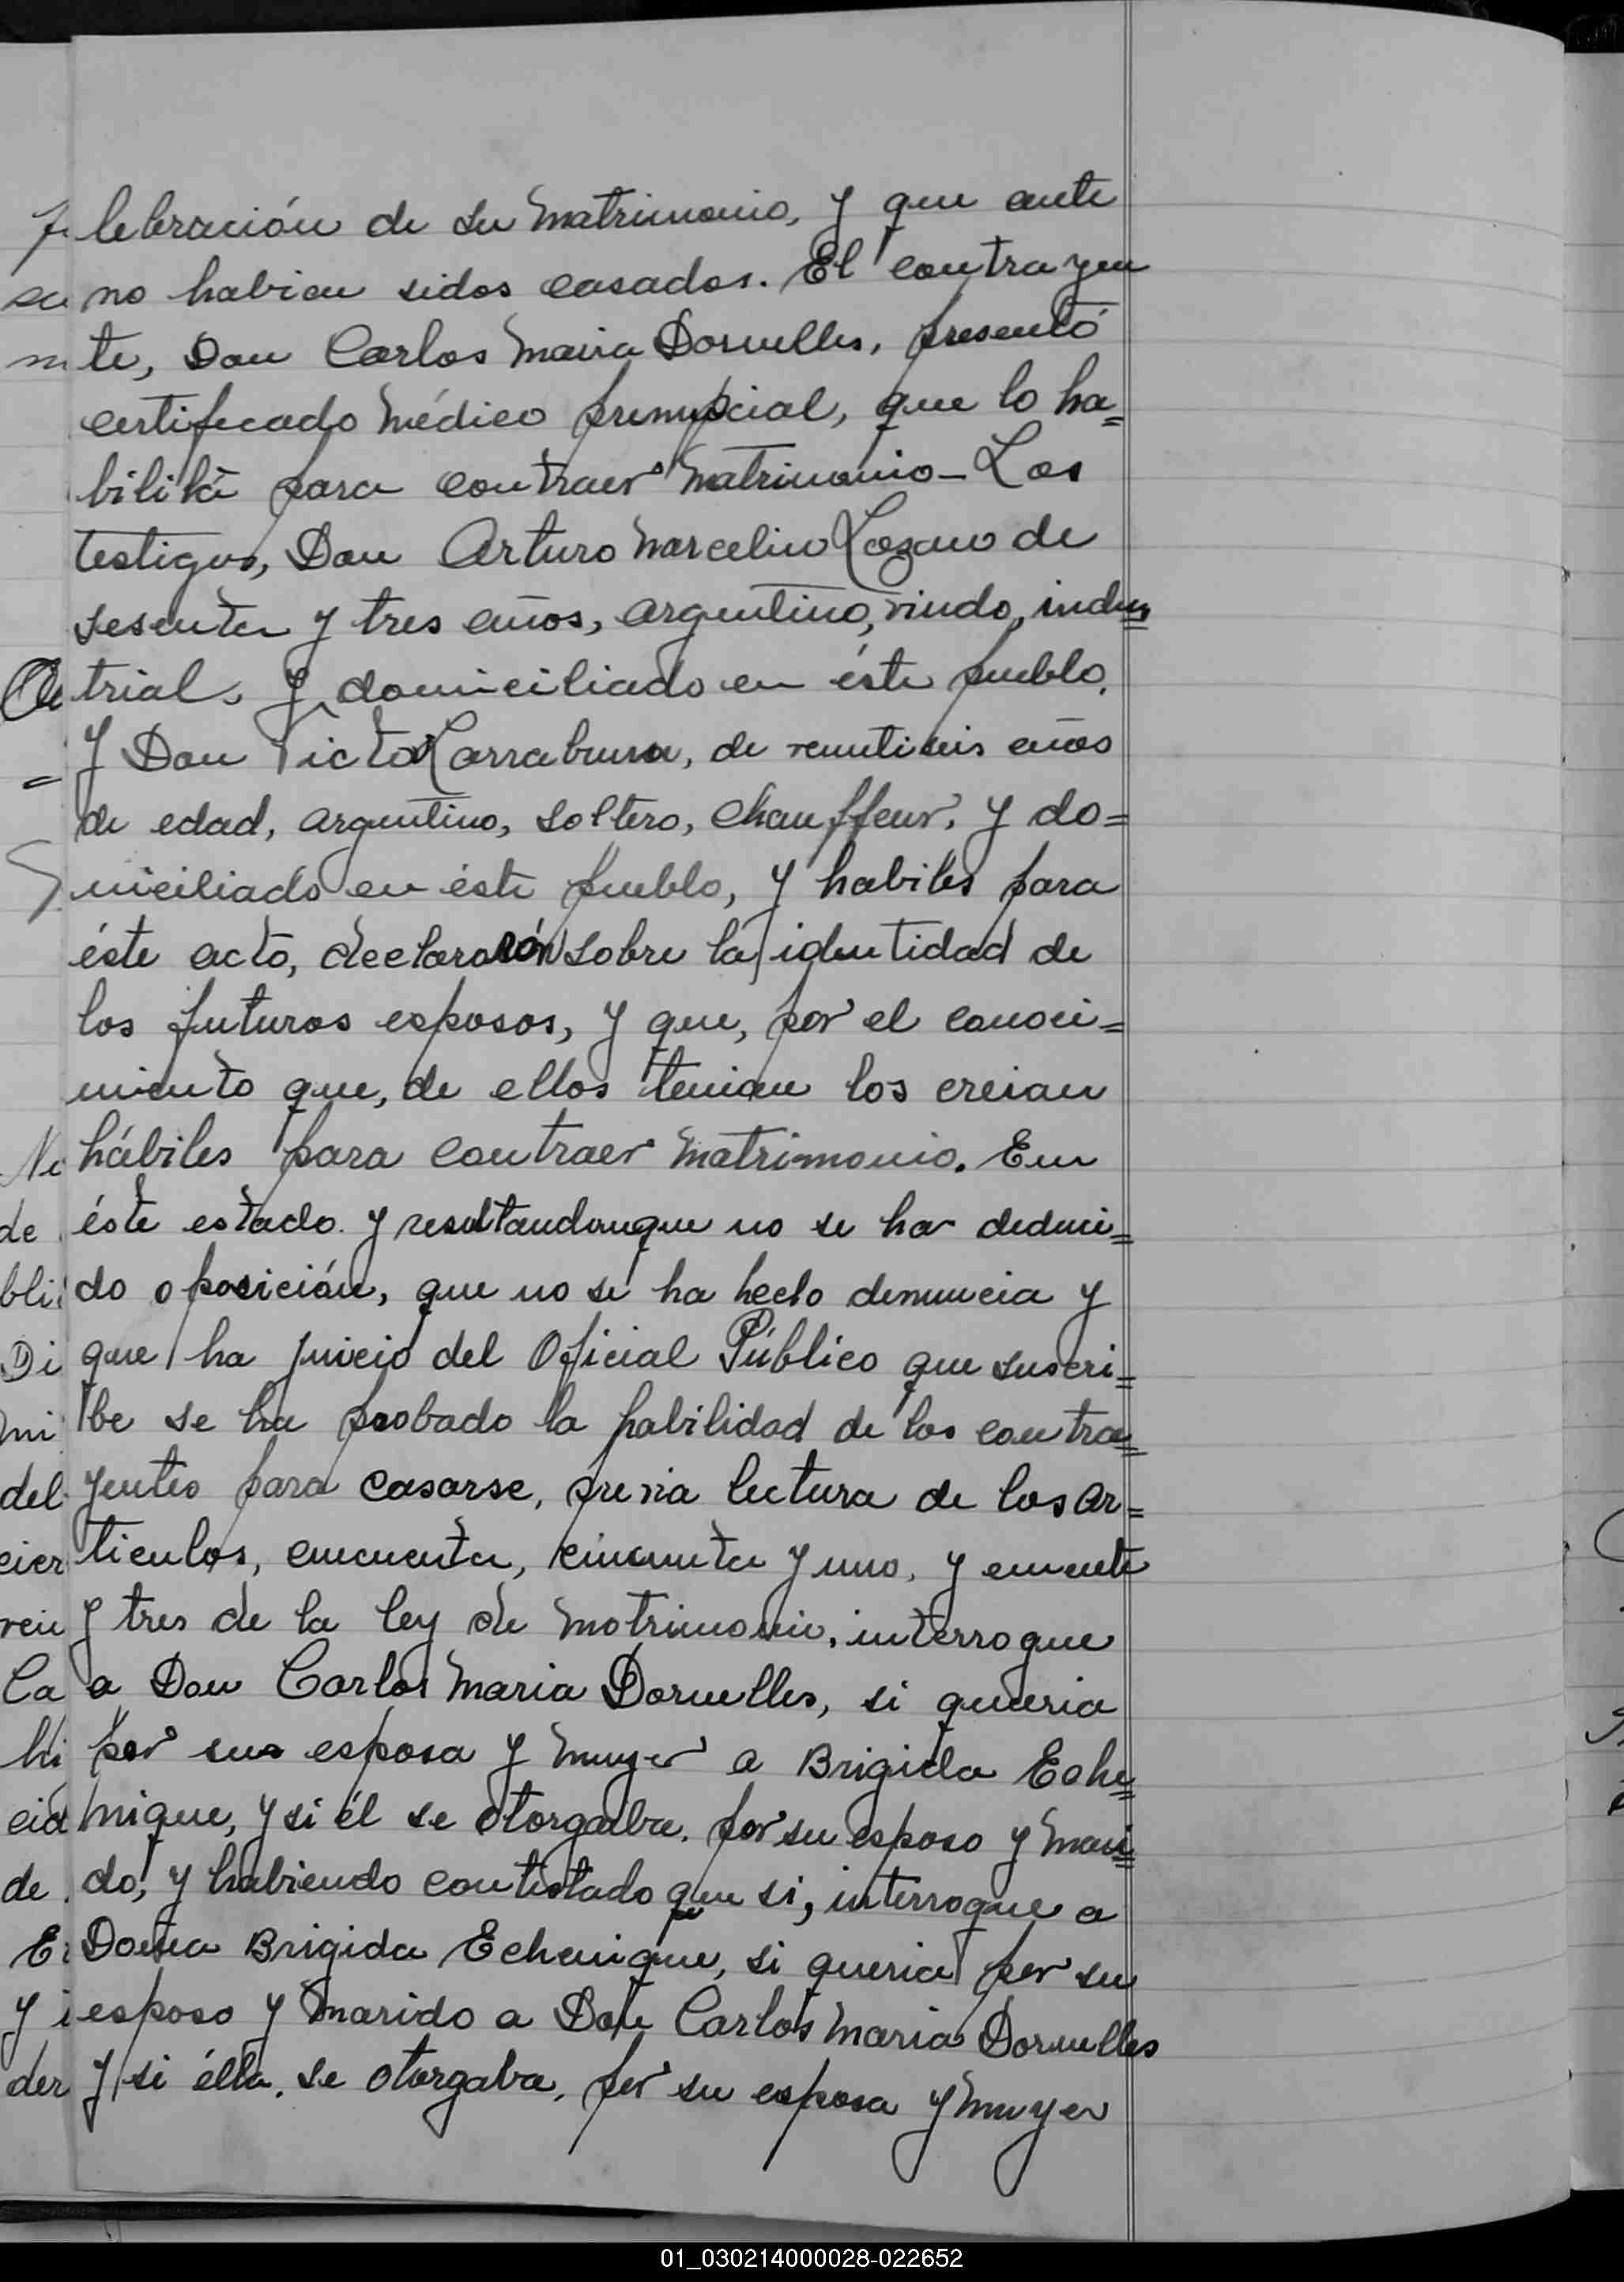 lebración de su matrimonio, y que ante
no habian sidos casados. El contrayen
te, Don Carlos Maria Dornelles, presentó
certificado médico prenupcial, que lo ha=
bilita para contraer matrimonio - Los
testigos, Don Arturo Marcelino Lozano de
sesenta y tres años, argentino, viudo, indus=
trial, y domiciliado en éste pueblo.
Y Don Victor Larraburu, de veintiseis años
de edad, argentino, soltero, chauffeur, y do=
miciliado en éste pueblo, y habiles para
éste acto, declararón sobre la identidad de
los futuros esposos, y que, por el conoci=
miento que, de ellos tenian los creian
hábiles para contraer matrimonio. En
éste estado y resultando que no se ha deduci=
do oposición, que no se ha hecho denuncia y
que ha juicio del Oficial Público que suscri=
be se ha probado la habilidad de los contra=
yentes para casarse, previa lectura de los ar=
ticulos, cincuenta, cincuenta y uno, y
y tres de la ley de matrimonio, interrogue
a Don Carlos Maria Dornelles, si queria
por su esposa y muyer a Brigida Eche=
nique, y si él se otorgaba, por su esposo y mari=
do, y habiendo contestado que si, interrogue a
Doña Brigida Echenique, si queria por su
esposo y marido a Don Carlos Maria Dornelles
y si élla, se otorgaba, por su esposa y muyer
01_030214000028-022652